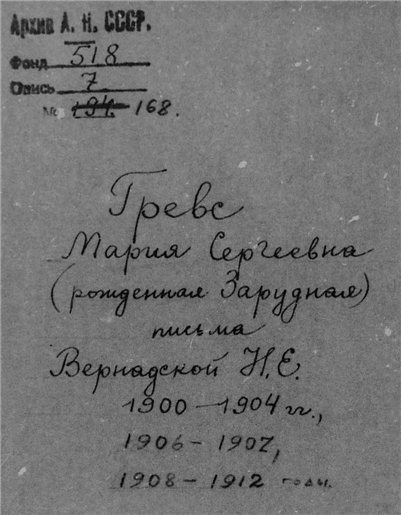 Архив А. Н. СССР.
Фонд 518
Опись 7
№ 194. 168.
Гревс
Мария Сергеевна
(рожденная Зарудная)
письма
Вернадской Н.Е.
1900–1904 гг.,
1906–1907,
1908–1912 годы.